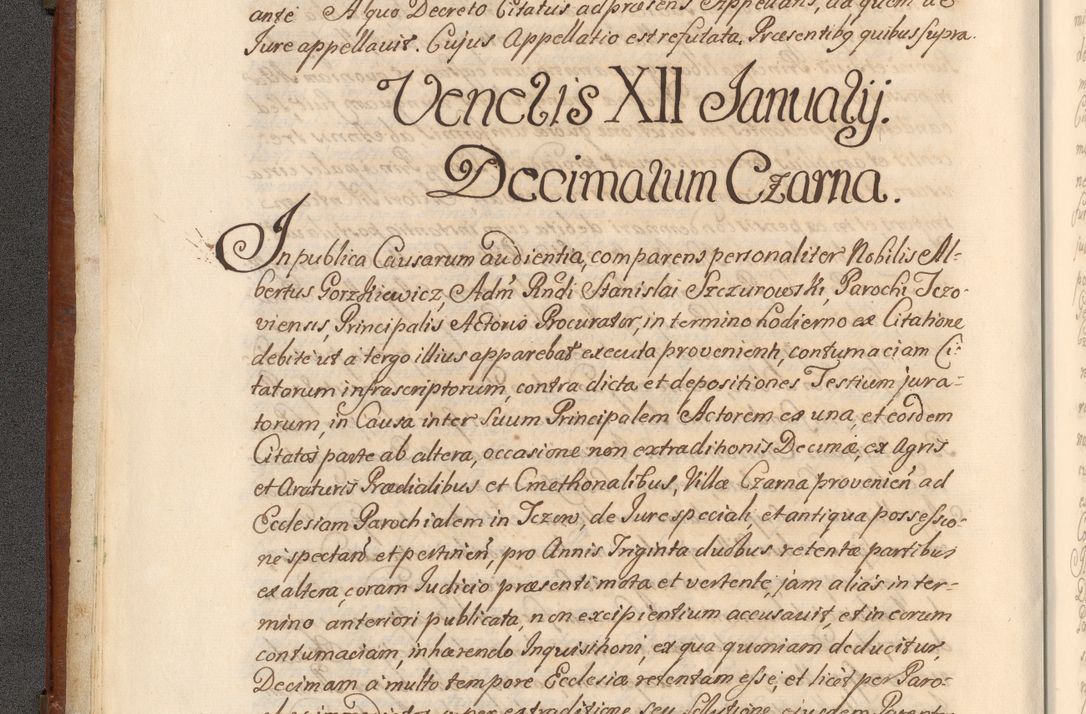 ante A quo Decreto Citatus ad præsens Appellans, ad quem de
Jure appellavit. Cujus Appellatio est refutata. Præsentibq quibus supra.
Veneris XII Januarij.
Decimarum Czarna.
In publica Causarum audientia, comparens personaliter Nobilis Al-
bertus Gorzkiewicz, Adm Rndi Stanislai Szczurowski, Parochi Jczo-
viensis, Principalis Actoris Procurator, in termino hodierno ex Citatione
debite ut a tergo illius apparebat executa provenienti, contumaciam Ci-
tatorum infrascriptorum, contra dicta et depositiones Testium jura-
torum, in Causa inter suum Principalem Actorem ex una, et eosdem
Citatos parte ab altera, occasione non extraditionis Decimæ, ex Agris
et Araturis Prædialibus et Cmethonalibus, Villæ Czarna provenien ad
Ecclesiam Parochialem in Jczow, de Jure speciali et antiqua possessio-
ne spectan et pertinen, pro Annis Triginta duobus retentæ partibus
ex altera, coram Judicio præsenti mota et vertente, jam alias in ter-
mino anteriori publicata, non excipientium accusavit, et in eorum
contumaciam, inhærendo Inquisitioni, ex qua quoniam deducitur,
Decimam a multo tempore Ecclesiæ retentam esse, et licet per Paro-
extraditione seu Solutione ejusdem